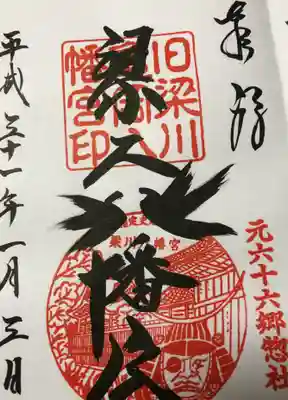 奉拝
元六十六郷惣社
旧梁川
八
幡宮印
梁川八幡
梁川八幡宮
平成三十一年一月三日